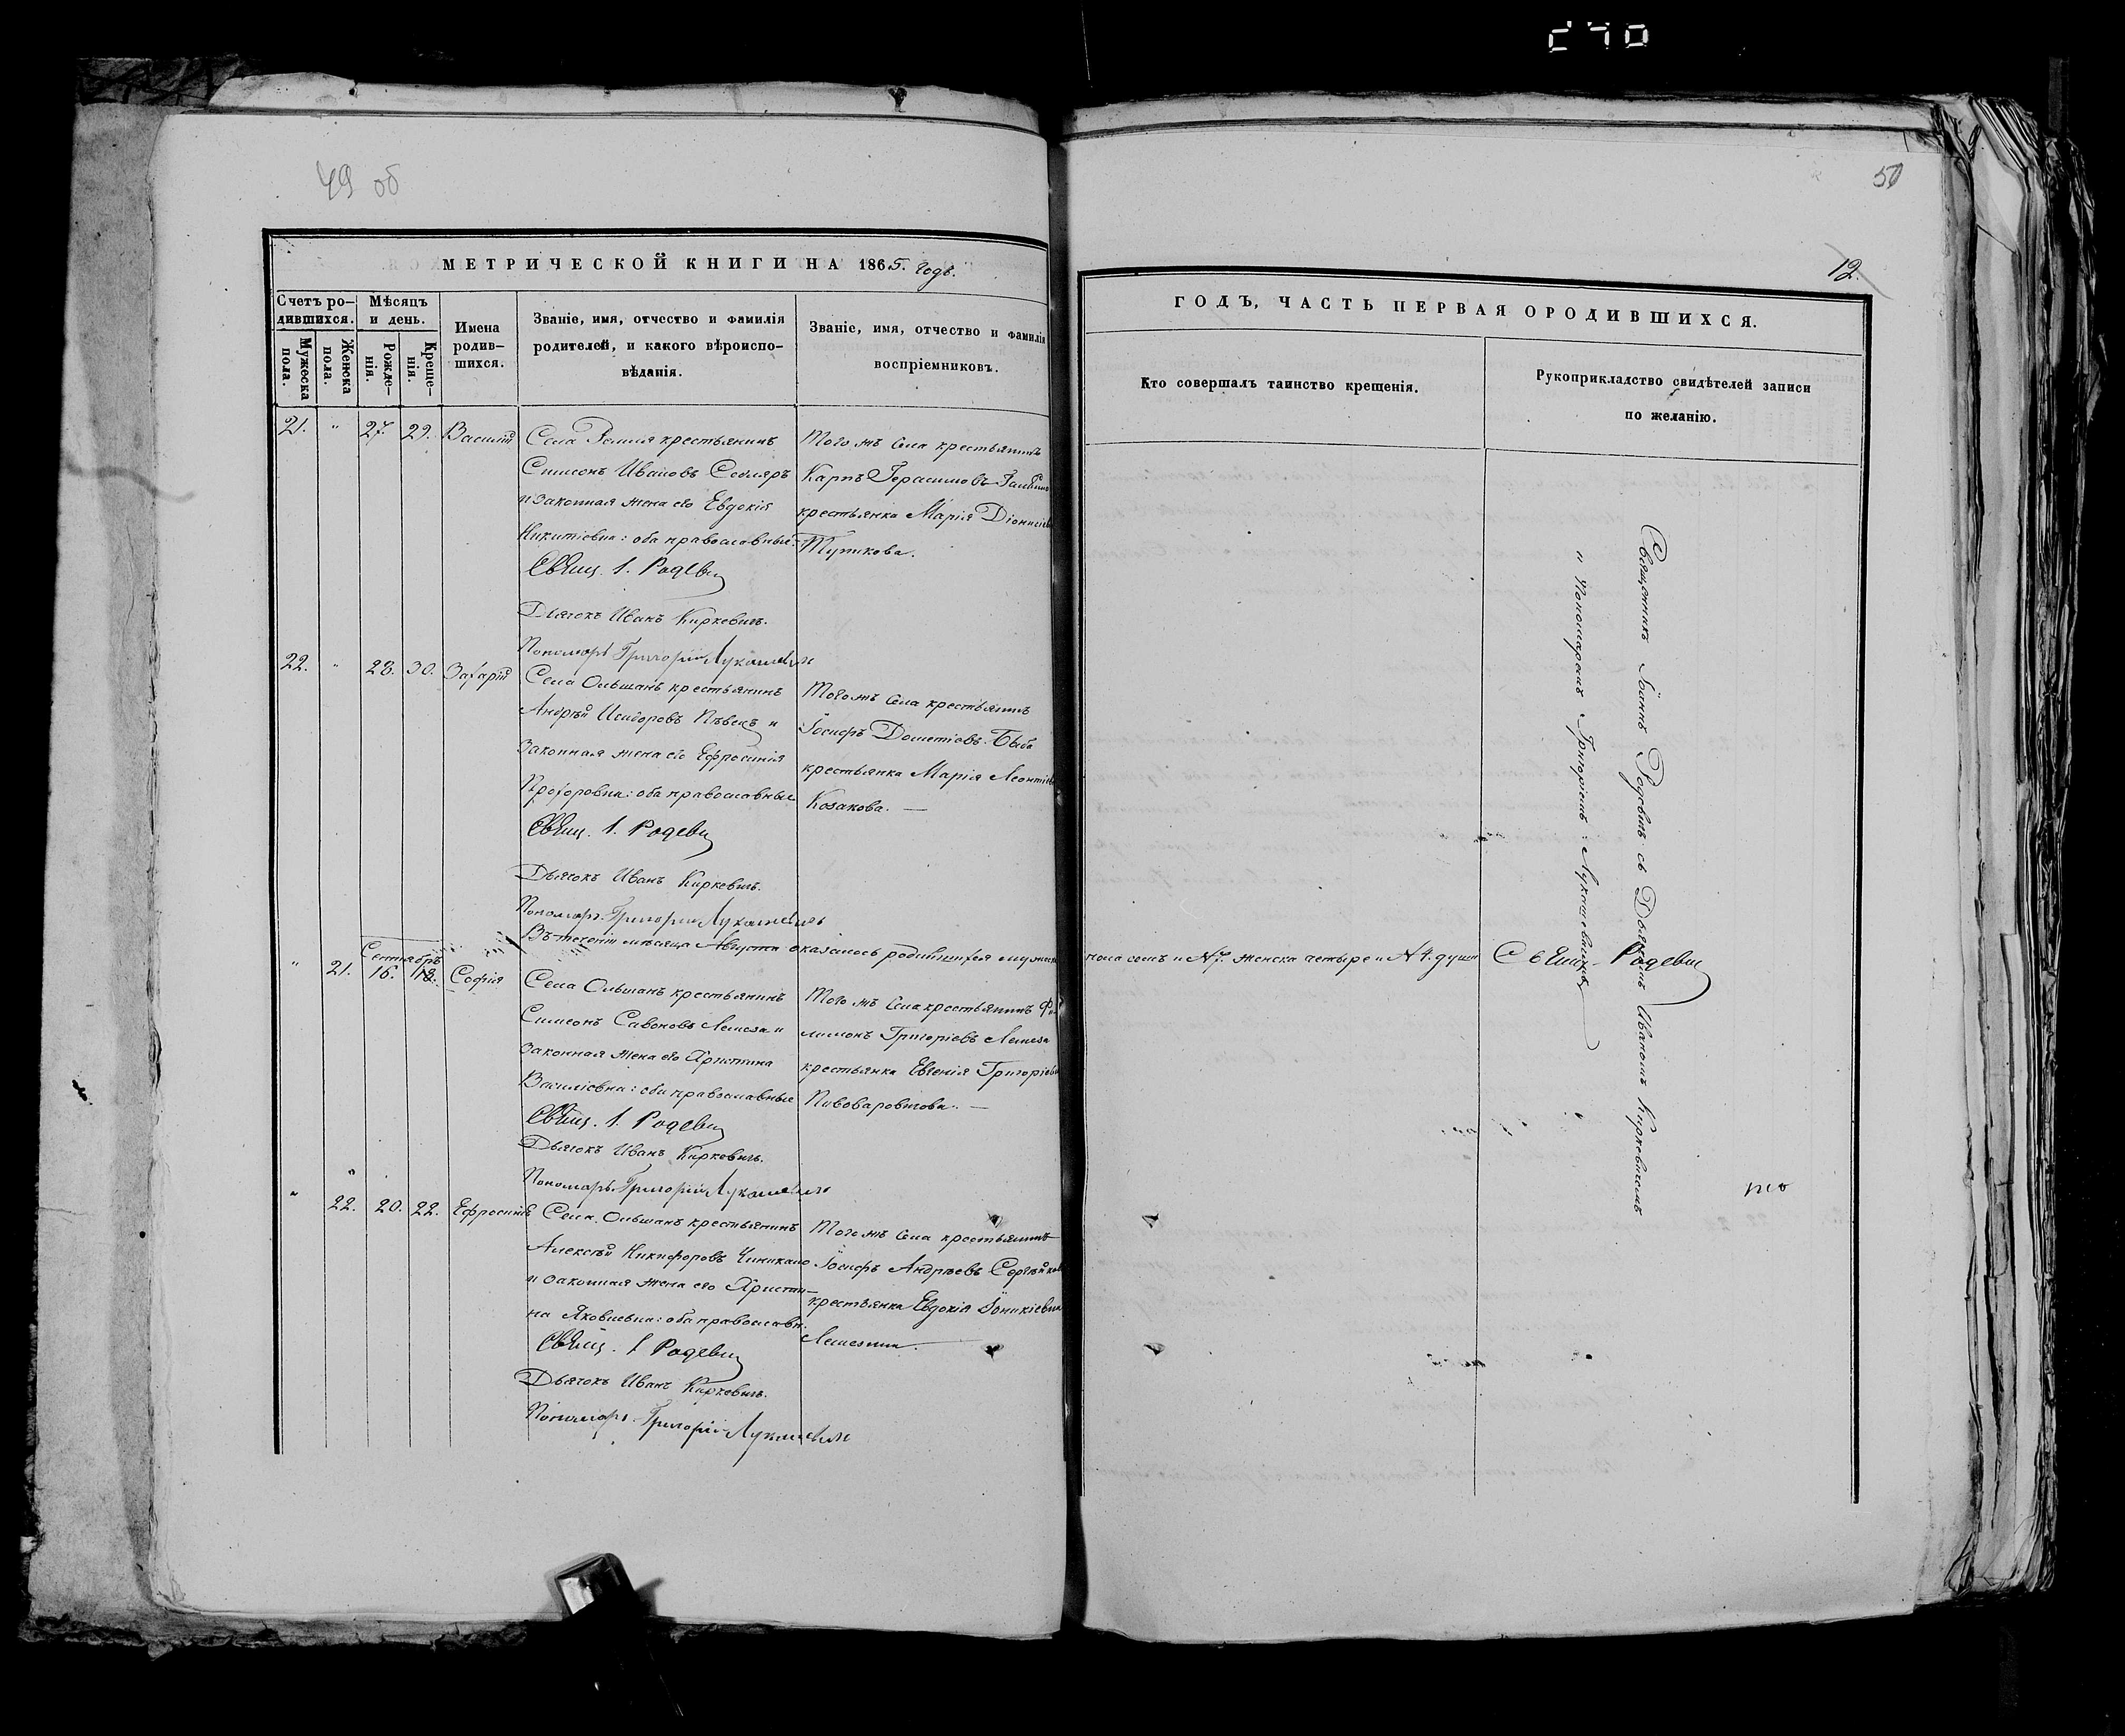 270
49 об
50
12.
МЕТРИЧЕСКОЙ КНИГИ НА 1865. годъ.
ГОДЪ, ЧАСТЬ ПЕРВАЯ ОРОДИВШИХСЯ.
Счетъ ро-
дившихся.
Мужеска
пола.
Женска
пола.
Мѣсяцъ
и день.
Рожде-
нія.
Креще-
нія.
Имена
родив-
шихся.
Званіе, имя, отчество и фамилія
родителей, и какого вѣроиспо-
вѣданія.
Званіе, имя, отчество и фамилія
воспріемниковъ.
Кто совершалъ таинство крещенія.
Рукоприкладство свидѣтелей записи
по желанію.
21. " 27. 29. Василій
Села крестьянинъ
Симеонъ Ивановъ Сколяръ
и законная жена его Евдокія
Никитіевна: оба православные
Свящ. І. Родевич
Дьячокъ Иванъ Киркевичъ.
Пономарь Григорій Лукашевичъ
Того жъ села крестьянинъ
Карпъ Герасимовъ
крестьянка Марія Діонисіевна
Тупикова.
22. " 28. 30. Захарій
Села Ольшанъ крестьянинъ
Андрей Исидоровъ Пѣвецъ и
законная жена его Ефросинія
Прохоровна: оба православные
Свящ. І. Родевич
Дьячокъ Иванъ Киркевичъ.
Пономарь Григорій Лукашевичъ
Того жъ села крестьянинъ
Іосифъ Дометіевъ
крестьянка Марія Леонтіев
Козакова. —
Въ теченіи мѣсяца Августа оказалось родившихся мужеска пола семь и №7. женска четыре и №4. души Свящ. Родевич
Сентябрь
" 21. 16. 18. Софія
Села Ольшанъ крестьянинъ
Симеонъ Савоновъ Лемеза и
законная жена его Христина
Василіевна: оба православные
Свящ. І. Родевич
Дьячокъ Иванъ Киркевичъ.
Пономарь Григорій Лукашевичъ
Того жъ села крестьянинъ Фи
лимонъ Григоріевъ Лемеза
крестьянка Евгенія Григоріевн
Пивоваровичова. —
" 22. 20. 22. Ефросинія
Села Ольшанъ крестьянинъ
Алексѣй Никифоровъ
и законная жена его Христи-
на Яковлевна: оба православн.
Свящ. І. Родевич
Дьячокъ Иванъ Киркевичъ.
Пономарь Григорій Лукашевичъ
Того жъ села крестьянинъ
Іосифъ Андреевъ
крестьянка Евдокія Іоникіевна
Лемезина.
Священникъ Іоаннъ Родевичъ съ Дьячкомъ Иваномъ Киркевичемъ
и Пономаремъ Григоріемъ Лукашевичемъ